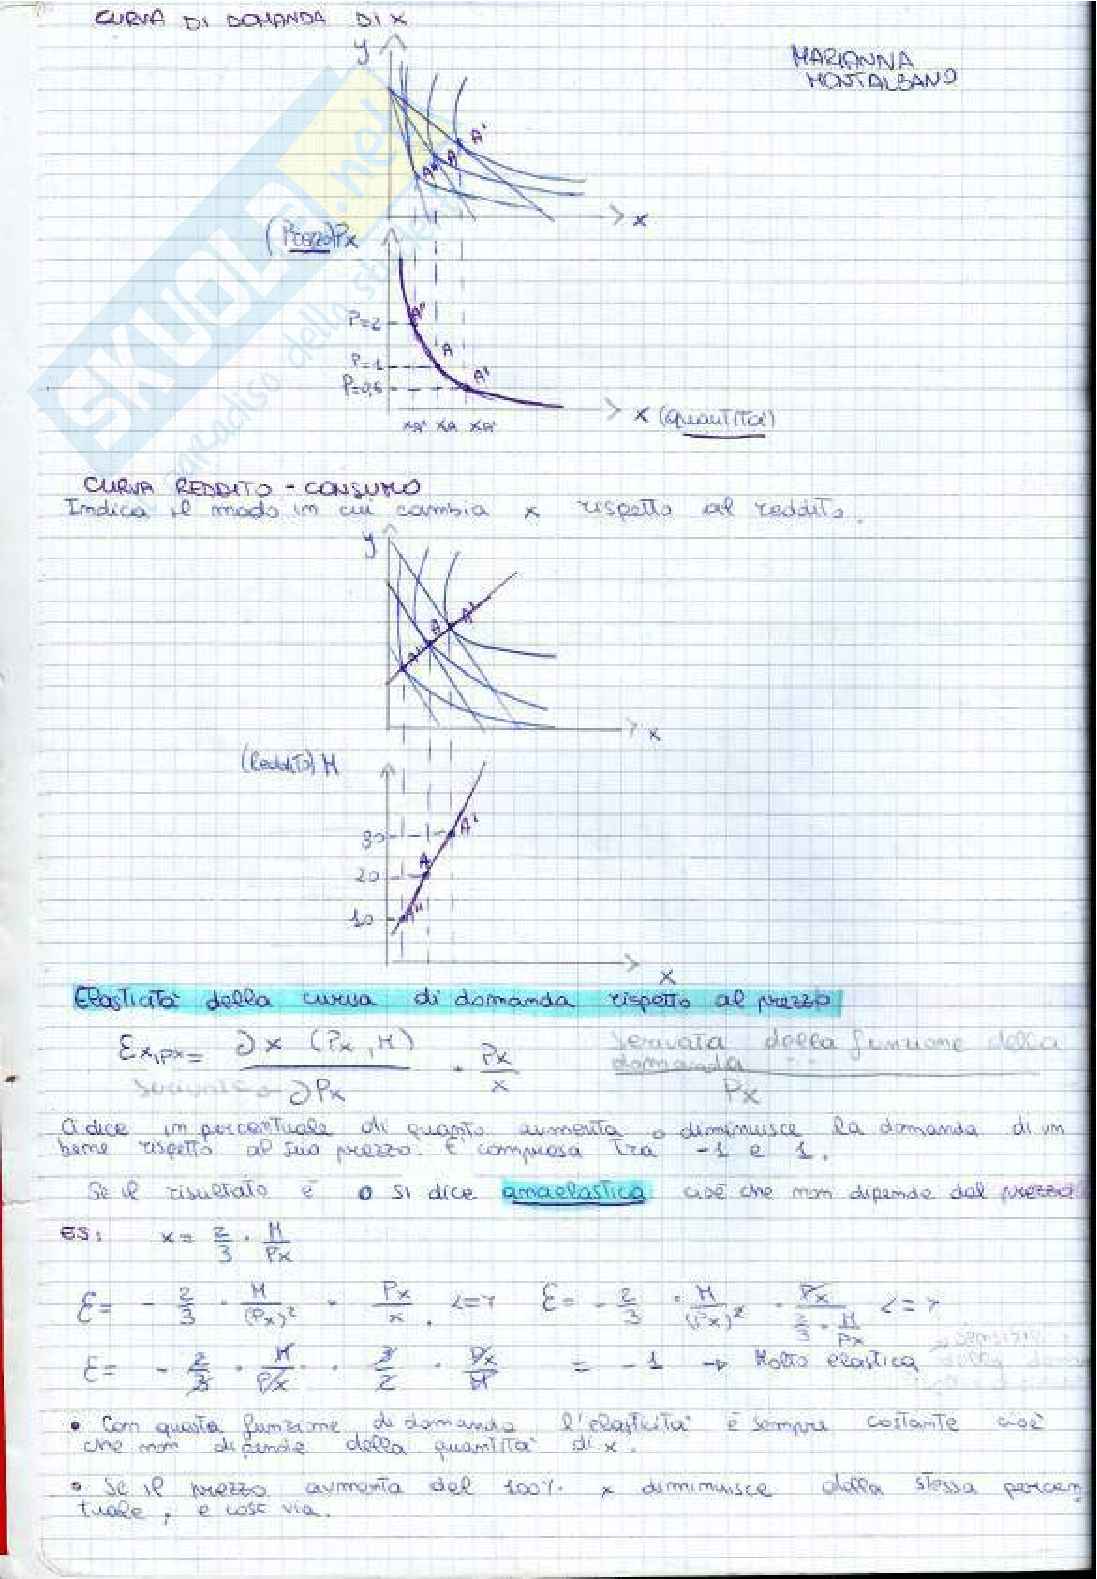 CURVA DI DOMANDA DI X
MARIANNA
MONTALBANO
y
A'
A
A"
x
(Prezzo) Px
P=2
A"
P=1
A
P=0,5
A'
xA" xA xA'
x (quantità)
CURVA REDDITO - CONSUMO
Indica il modo in cui cambia x rispetto al reddito.
y
A'
A
A"
x
(Reddito) M
30
A'
20
A
10
A"
x
Elasticità della curva di domanda rispetto al prezzo
Ɛx,px = ∂x (Px, M) / ∂Px · Px / x
derivata della funzione della
domanda
Px
Ci dice in percentuale di quanto aumenta o diminuisce la domanda di un
bene rispetto al suo prezzo. È compresa tra -1 e 1.
Se il risultato è 0 si dice anaelastica cioè che non dipende dal prezzo
ES: x = 2/3 · M/Px
Ɛ = - 2/3 · M/(Px)² · Px/x <=> Ɛ = - 2/3 · M/(Px)² · Px/(2/3 · M/Px) <=>
Ɛ = - 2/3 · M/Px · 3/2 · Px/M = -1 → Molto elastica
• Con questa funzione di domanda l'elasticità è sempre costante cioè
che non dipende della quantità di x.
• Se il prezzo aumenta del 100% x diminuisce della stessa percen
tuale, e così via.
SKUOLA.net
paradiso dello studente